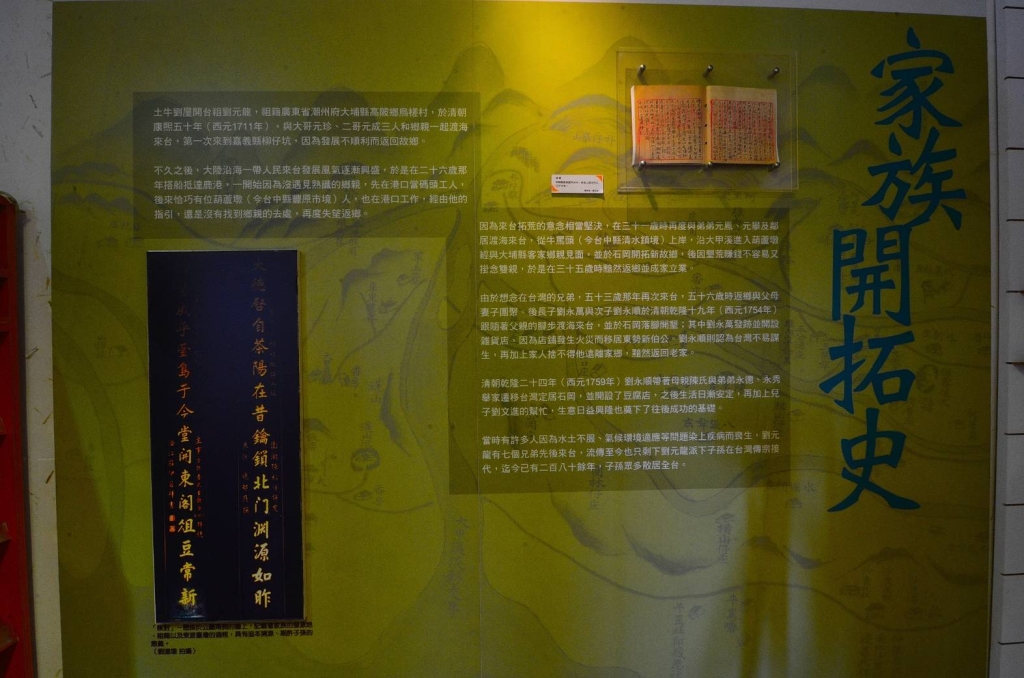 家族開拓史
土牛劉屋開台祖劉元龍，祖籍廣東省潮州府大埔縣高陂鄉烏槎村，於清朝
康熙五十年（西元1711年），與大哥元珍、二哥元成三人和鄉親一起渡海
來台，第一次來到嘉義縣柳仔坑，因為發展不順利而返回故鄉。
不久之後，大陸沿海一帶人民來台發展風氣逐漸興盛，於是在二十六歲那
年搭船抵達鹿港，一開始因為沒遇見熟識的鄉親，先在港口當碼頭工人，
後來恰巧有位葫蘆墩（今台中縣豐原市境）人，也在港口工作，經由他的
指引，還是沒有找到鄉親的去處，再度失望返鄉。
因為來台拓荒的意念相當堅決，在三十一歲時再度與弟弟元鳳、元攀及鄰
居渡海來台，從牛罵頭（今台中縣清水鎮境）上岸，沿大甲溪進入葫蘆墩
經與大埔縣客家鄉親見面，並於石岡開拓新故鄉，後因墾荒賺錢不容易又
掛念雙親，於是在三十五歲時黯然返鄉並成家立業。
由於想念在台灣的兄弟，五十三歲那年再次來台，五十六歲時返鄉與父母
妻子團聚。後長子劉永萬與次子劉永順於清朝乾隆十九年（西元1754年）
跟隨著父親的腳步渡海來台，並於石岡落腳開墾；其中劉永萬發跡並開設
雜貨店，因為店鋪發生火災而移居東勢新伯公。劉永順則認為台灣不易謀
生，再加上家人捨不得他遠離家鄉，黯然返回老家。
清朝乾隆二十四年（西元1759年）劉永順帶著母親陳氏與弟弟永德、永秀
舉家遷移台灣定居石岡，並開設了豆腐店，之後生活日漸安定，再加上兒
子劉文進的幫忙，生意日益興隆也奠下了往後成功的基礎。
當時有許多人因為水土不服、氣候環境適應等問題染上疾病而喪生，劉元
龍有七個兄弟先後來台，流傳至今也只剩下劉元龍派下子孫在台灣傳宗接
代，迄今已有二百八十餘年，子孫眾多散居全台。
啓自茶陽在昔鑰鎖北门渊源如昨
于今堂闲東阁俎豆常新